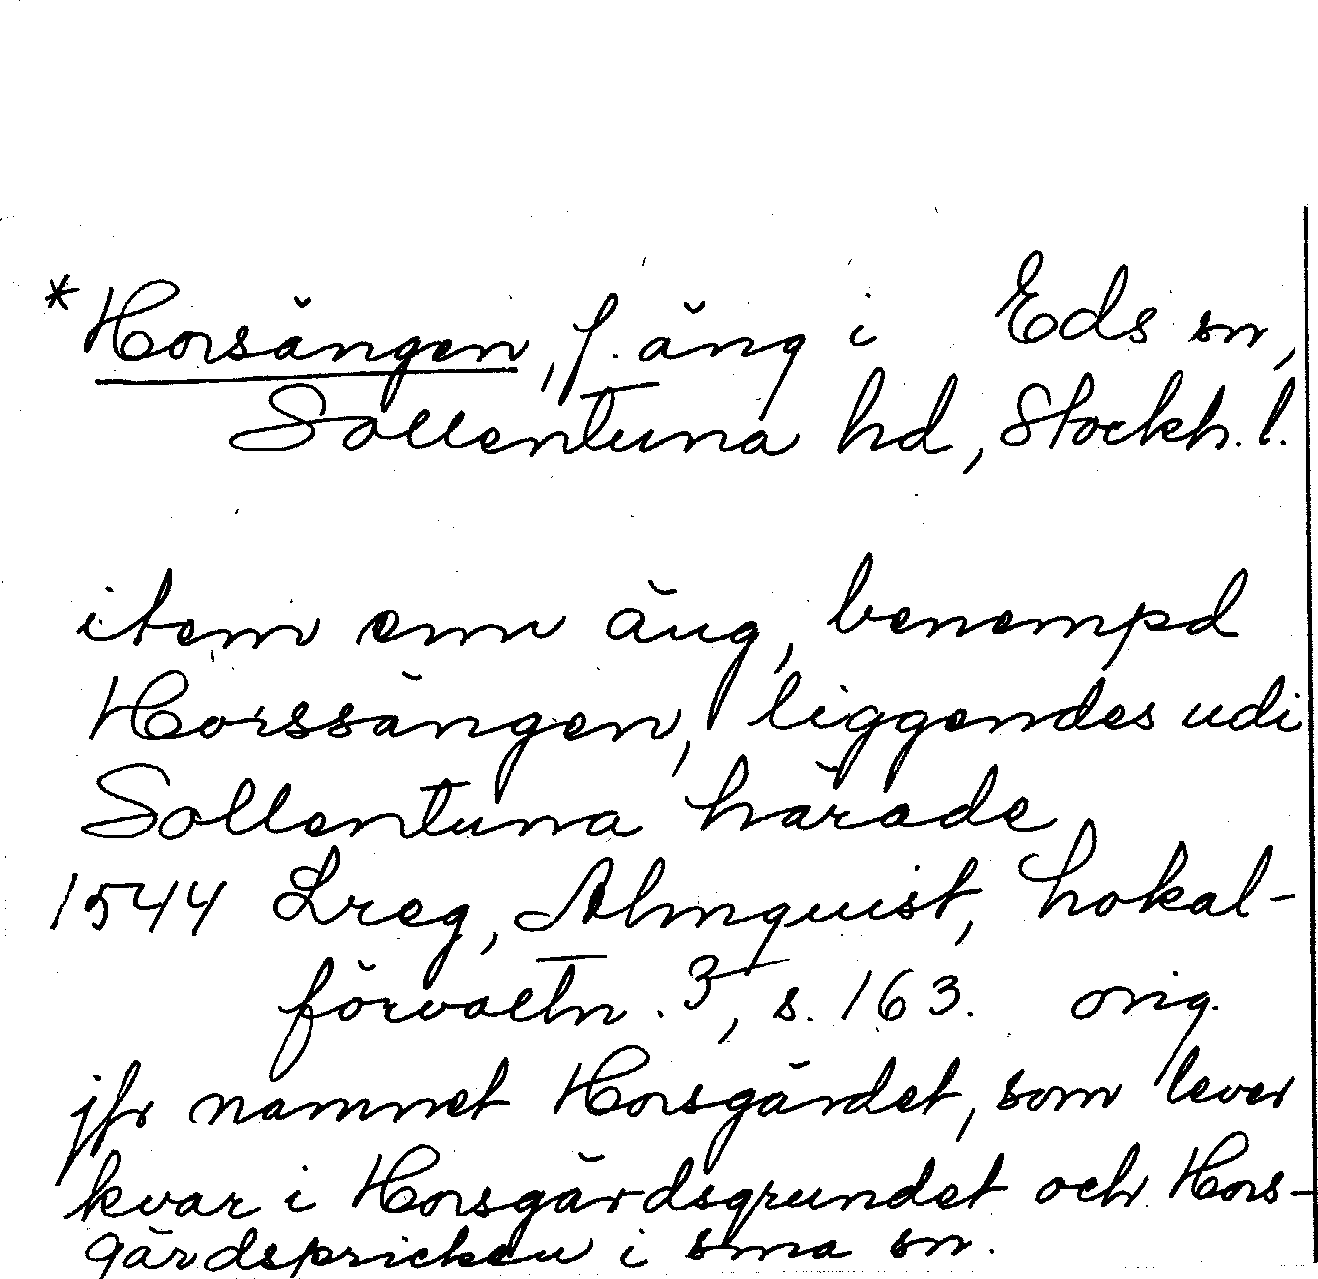 *Horsängen, f. äng i Eds sn,
Sollentuna hd, Stockh. l.
item enn äng, benempd
Horssängen, liggendes udi
Sollentuna härade
1544 Lreg, Almquist, Lokal-
förvaltn. 3, s. 163. orig.
jfr namnet Horsgärdet, som lever
kvar i Horsgärdsgrundet och Hors-
gärdspricken i sma sn.